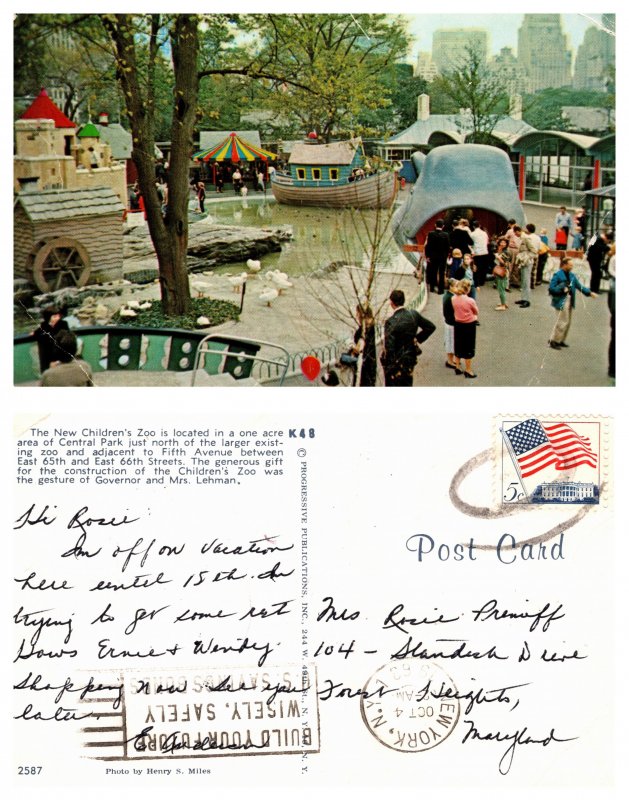 The New Children's Zoo is located in a one acre
area of Central Park just north of the larger exist-
ing zoo and adjacent to Fifth Avenue between
East 65th and East 66th Streets. The generous gift
for the construction of the Children's Zoo was
the gesture of Governor and Mrs. Lehman.
K48
© PROGRESSIVE PUBLICATIONS, INC., 244 W. 49th St., N.Y. 19, N.Y.
5c
Post Card
Hi Rosie:
Im off on vacation
here until 15th. Im
trying to get some rest
Hows Ernie & Wendy.
Shopping now See you
later.
Mrs. Rosie Prenioff
104 - Standish Drive
Forest Heights,
Maryland
BUILD YOUR FUTURE
WISELY, SAFELY
U.S. SAVINGS BONDS
NEW YORK, N.Y.
OCT 4
AM
2587
Photo by Henry S. Miles